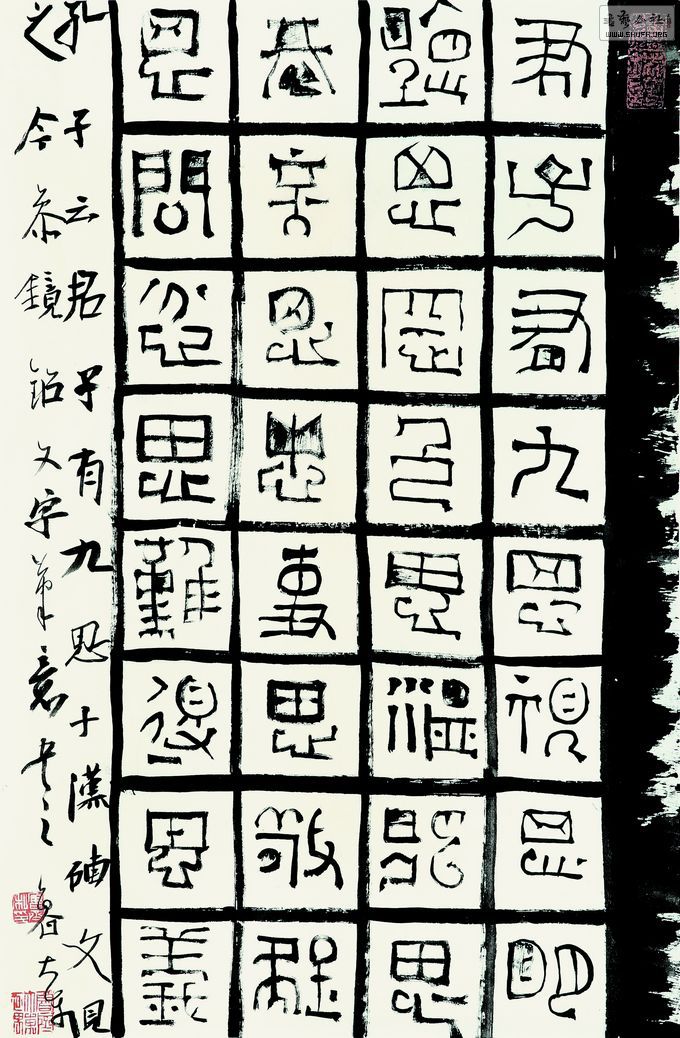 君子有九思視思明
聽思聰色思溫貌思
恭言思忠事思敬疑
思問忿思難得思義
孔子云君子有九思于漢碑文見
之今參鏡銘文字筆意書之
WWW.SHUFA.ORG